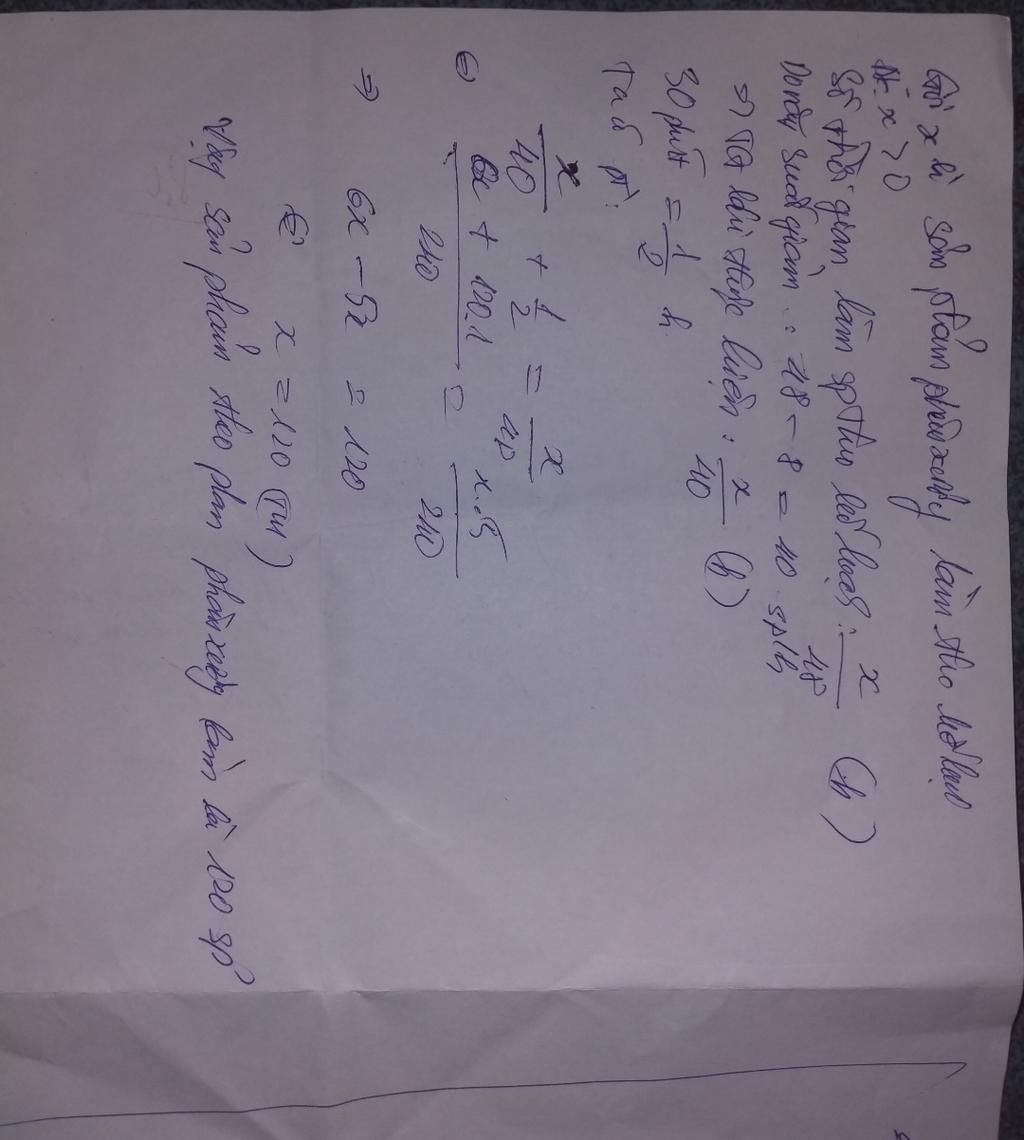 Gọi x là sản phẩm phân xưởng làm theo kế hoạch
ĐK: x > 0
Số thời gian làm sp theo kế hoạch: x/48 (h)
Do năng suất giảm: 48 - 8 = 40 sp/h
=> TG khi thực hiện: x/40 (h)
30 phút = 1/2 h
Ta có pt:
x/40 + 1/2 = x/40
⇔ (6x + 120.1)/240 = (x.5)/240
=> 6x - 5x = 120
⇔ x = 120 (TM)
Vậy sản phẩm theo phân xưởng làm là 120 sp